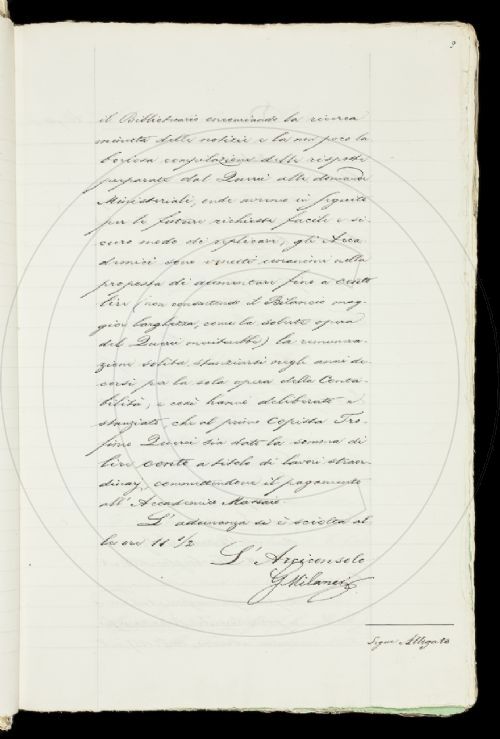 9
il Bibliotecario encomiando la ricerca
minuta delle notizie e la non poco la
boriosa compilazione delle risposte
preparate dal Querci alle domande
Ministeriali, onde avremo in seguito
per le future richieste facile e si-
curo modo di replicare, gli Acca-
demici sono venuti unanimi nella
proposta di aumentare fino a cento
lire (non consentendo il Bilancio mag-
gior larghezza, come la solerte opera
del Querci meriterebbe) la remunera-
zione solita stanziarsi negli anni de-
corsi per la sola opera della Conta-
bilità, e così hanno deliberato e
stanziato, che al primo Copista
Querci sia data la somma di
lire cento a titolo di lavori straor-
dinarj, commettendone il pagamento
all'Accademico Massaio.
L'adunanza si è sciolta al
le ore 11 1/2
L'Arciconsolo
G Milanesi
Segue Allegato